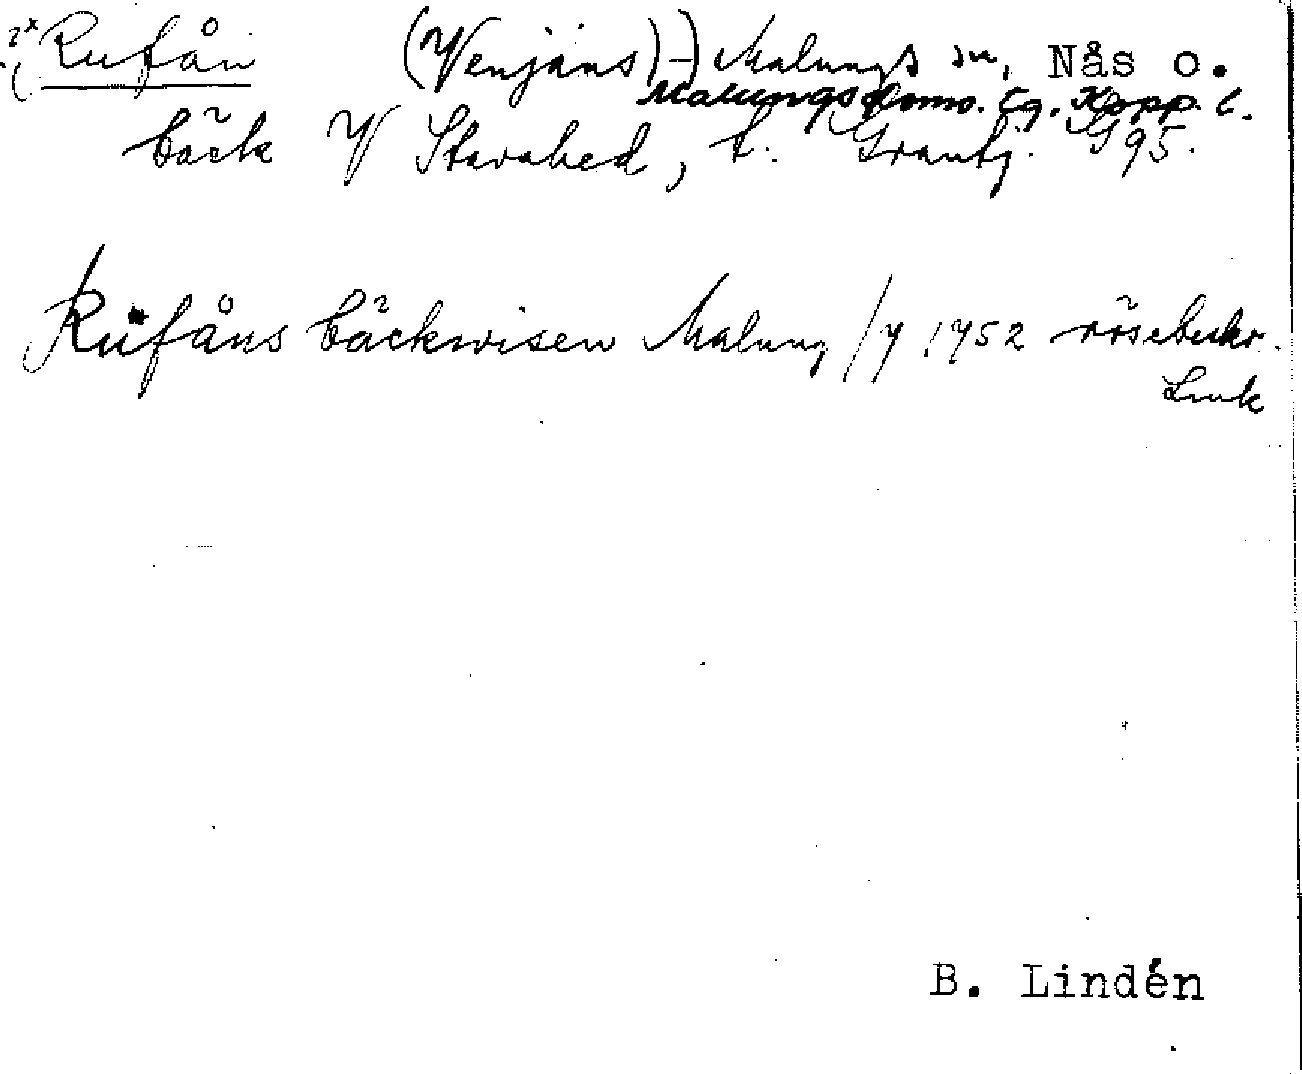 Rufån (Venjans) - Malungs sn, Nås o.
Malungs doms. tg. Kopp. l.
bäck V Stavahed, t. Grantj. G 95.
Rufåns bäckwisen Malung /7 1752 rösebeskr.
Lmk
B. Lindén